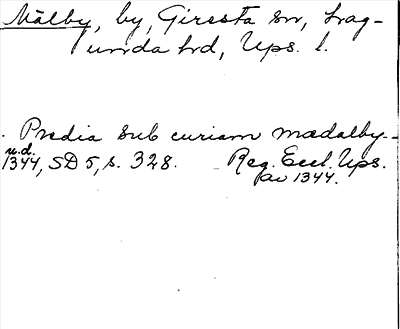 Målby, by, Giresta sn, Lag-
unda hd, Ups. l.
Predia sub curiam mædalby -
u.d.
1344, SD 5, s. 328. Reg. Eccl. Ups.
av 1344.